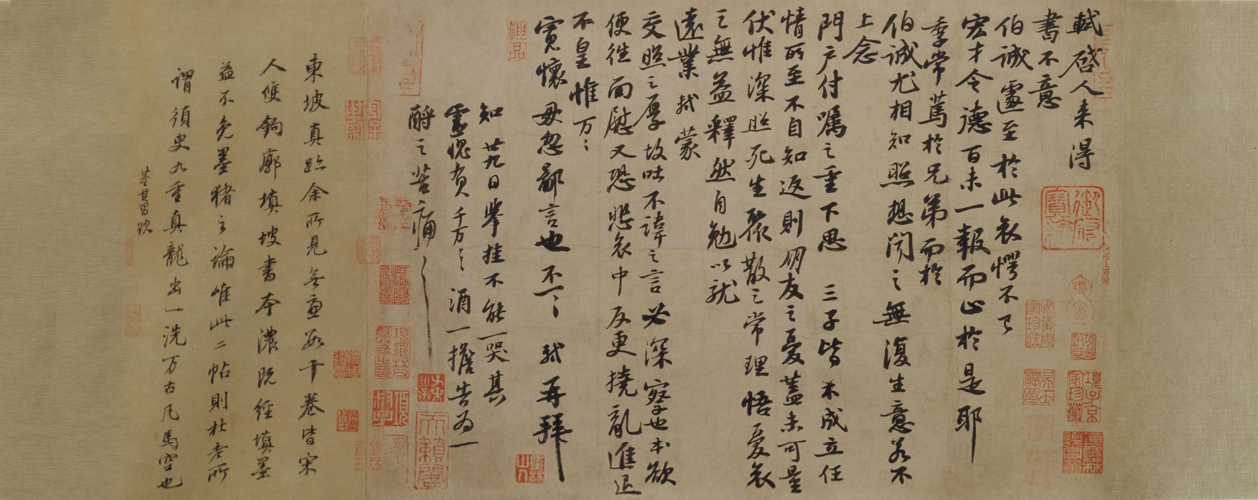 軾啓人來得
書不意
伯誠遽至於此哀愕不已
宏才令德百未一報而止於是耶
季常篤於兄弟而於
伯誠尤相知照想聞之無復生意若不
上念
門户付囑之重下思三子皆未成立任
情所至不自知返則朋友之憂蓋未可量
伏惟深照死生聚散之常理悟憂哀
之無益釋然自勉以就
遠業軾蒙
交照之厚故吐不諱之言必深察也本欲
便往面慰又恐悲哀中反更撓亂進退
不皇惟万万
寬懷毋忽鄙言也不一一軾再拜
知廿九日舉掛不能一哭其
靈愧負千万千万酒一擔告為一
酹之苦痛苦痛
東坡真跡余所見無慮數十卷皆宋
人雙鉤廓填坡書本濃既經填墨
益不免墨豬之論唯此二帖則杜老所
謂須臾九重真龍出一洗万古凡馬空也
董其昌題